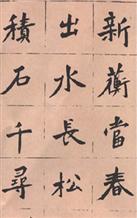 新蘅當春
出水長松
積石千尋